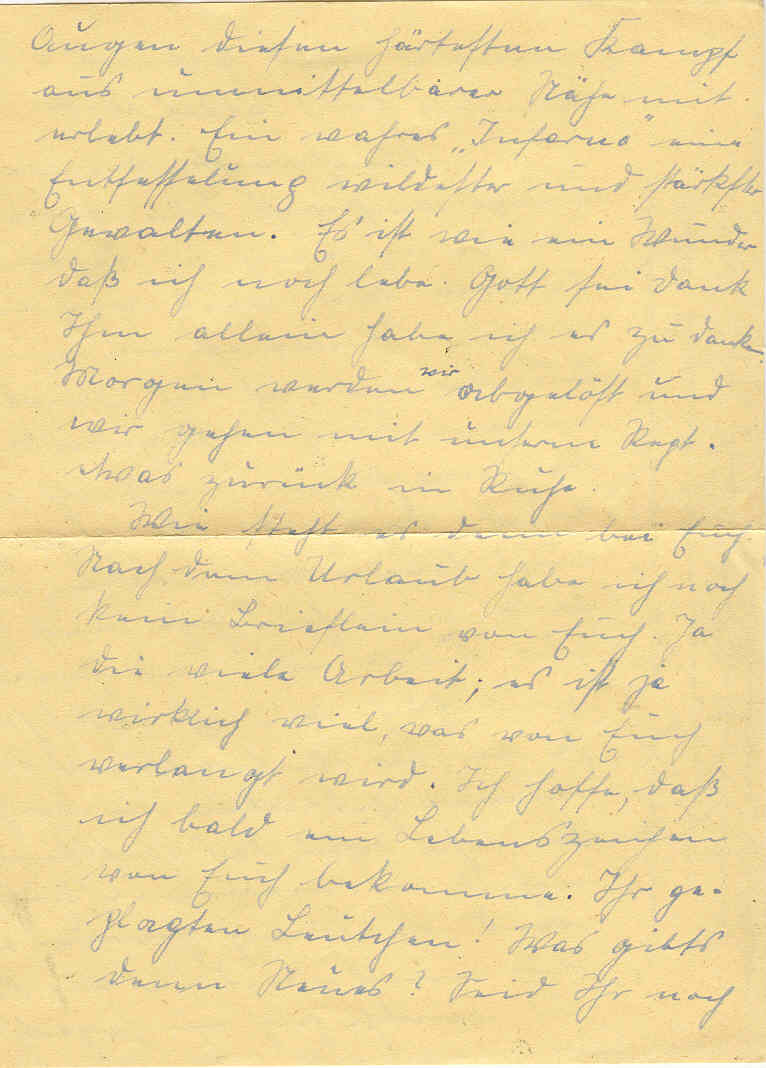 Augen diesen härtesten Kampf
aus unmittelbarer Nähe mit
erlebt. Ein wahres „Inferno" eine
Entfesselung wildester und stärkster
Gewalten. Es ist wie ein Wunder
daß ich noch lebe. Gott sei Dank
Ihm allein habe ich es zu danken.
Morgen werden wir abgelöst und
wir gehen mit unserm Regt.
etwas zurück in Ruhe.
Wie steht es denn bei Euch.
Nach dem Urlaub habe ich noch
kein Brieflein von Euch. Ja
die viele Arbeit; es ist ja
wirklich viel, was von Euch
verlangt wird. Ich hoffe, daß
ich bald ein Lebenszeichen
von Euch bekomme. Ihr ge-
plagten Leutchen! Was gibts
denn Neues? Seid Ihr noch